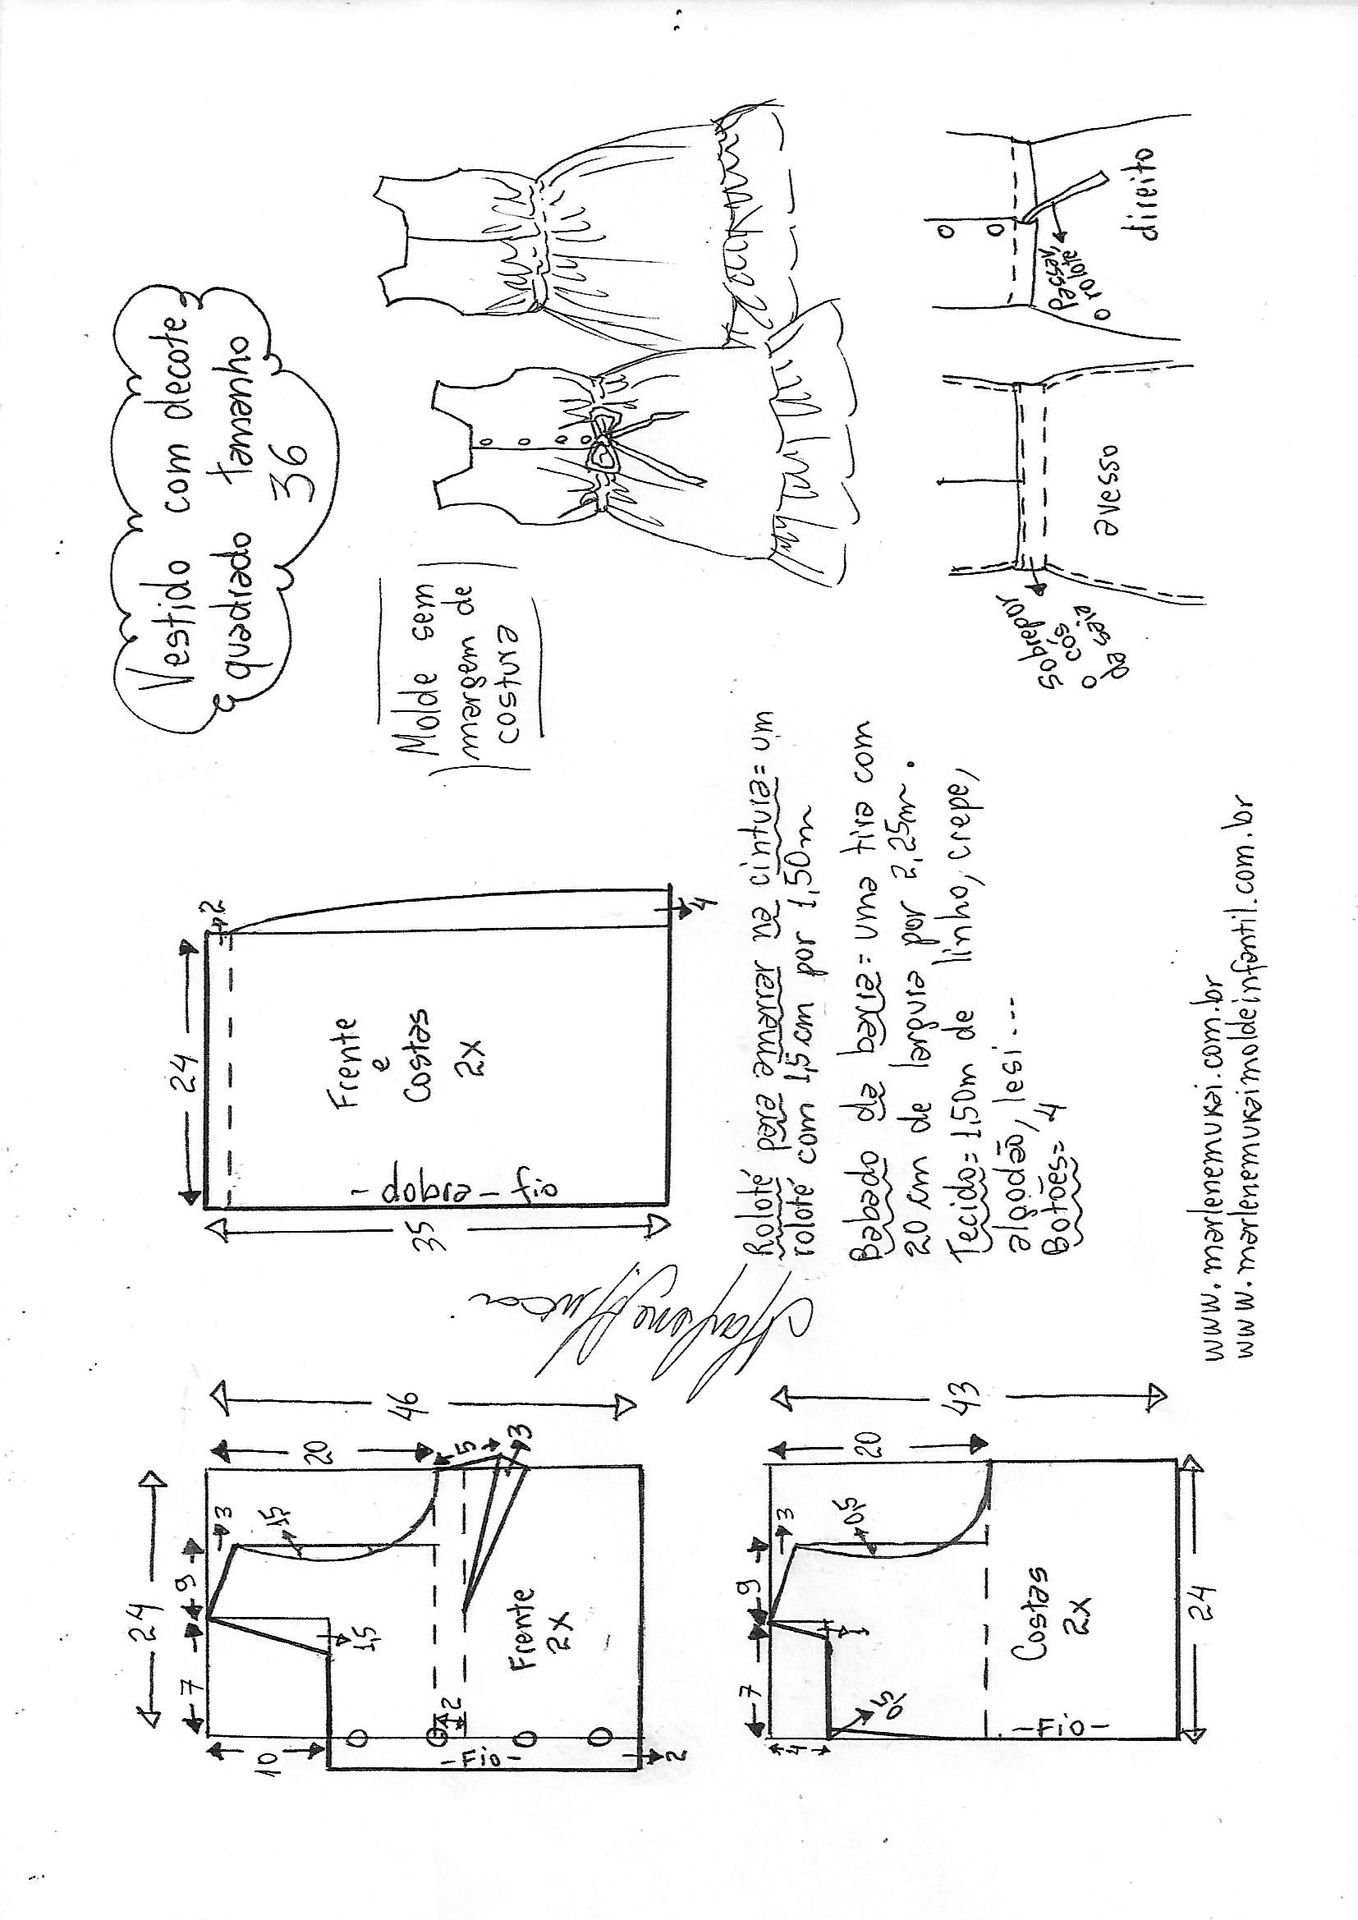 Vestido com decote
quadrado tamanho
36
Molde sem
margem de
costura
24
7
9
3
1,5
20
46
5
3
10
1,5
2
- Fio -
2
Frente
2x
24
2
35
4
Frente
e
Costas
2x
- dobra - fio
7
9
3
0,5
20
43
4
1
0,5
- Fio -
Costas
2x
24
Marlene Mukai
Roloté para amarrar na cintura = um
roloté com 1,5 cm por 1,50m
Babado da barra = uma tira com
20 cm de largura por 2,25m.
Tecido = 1,50m de linho, crepe,
algodão, lesi...
Botões = 4
sobrepor
o cós
da saia
avesso
Passar
o rolote
direito
www.marlenemukai.com.br
www.marlenemukaimoldeinfantil.com.br